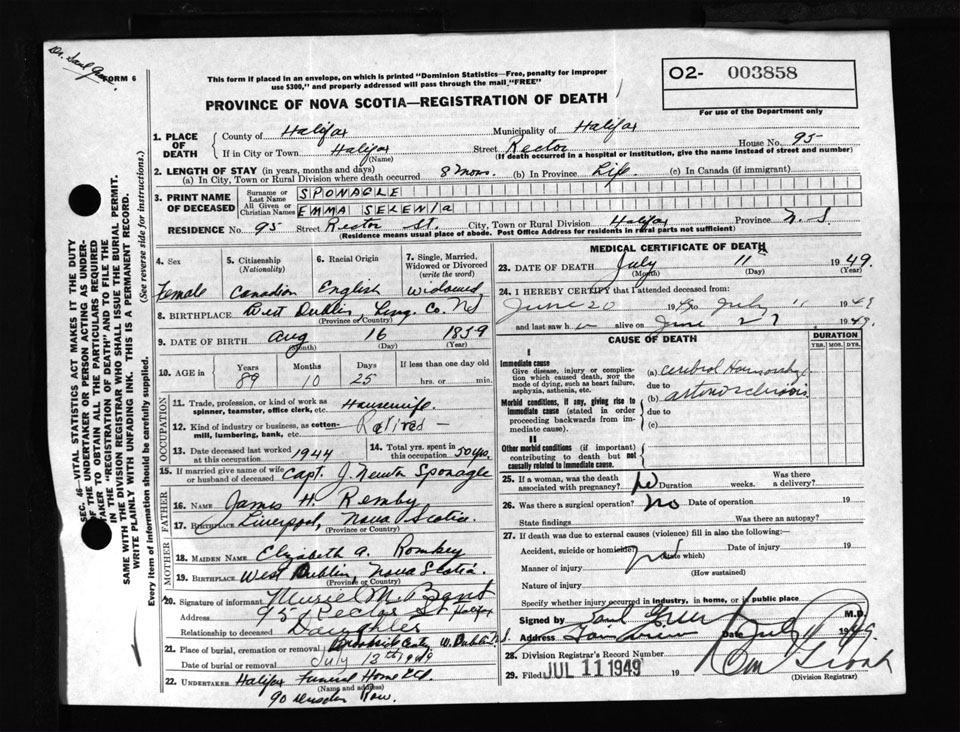 Dr. Saul Green
FORM 6
This form if placed in an envelope, on which is printed "Dominion Statistics—Free, penalty for improper
use $300," and properly addressed will pass through the mail "FREE"
PROVINCE OF NOVA SCOTIA—REGISTRATION OF DEATH
O2- 003858
For use of the Department only
1. PLACE OF DEATH
County of Halifax Municipality of Halifax
If in City or Town Halifax Street Rector House No. 95
(Name) (If death occurred in a hospital or institution, give the name instead of street and number)
2. LENGTH OF STAY (in years, months and days)
(a) In City, Town or Rural Division where death occurred 8 mos. (b) In Province Life (c) In Canada (if immigrant)
3. PRINT NAME OF DECEASED
Surname or Last Name SPONAGLE
All Given or Christian Names EMMA SELENIA
RESIDENCE No. 95 Street Rector St. City, Town or Rural Division Halifax Province N.S
(Residence means usual place of abode. Post Office Address for residents in rural parts not sufficient)
4. Sex Female
5. Citizenship (Nationality) Canadian
6. Racial Origin English
7. Single, Married, Widowed or Divorced (write the word) Widowed
8. BIRTHPLACE West Dublin, Lung. Co. NS
(Province or Country)
9. DATE OF BIRTH Aug 16 1859
(Month) (Day) (Year)
10. AGE in Years 89 Months 10 Days 25 If less than one day old hrs. or min.
OCCUPATION
11. Trade, profession, or kind of work as spinner, teamster, office clerk, etc. Housewife.
12. Kind of industry or business, as cotton-mill, lumbering, bank, etc. Retired
13. Date deceased last worked at this occupation 1944
14. Total yrs. spent in this occupation 50 yrs.
15. If married give name of wife or husband of deceased Capt. J. Newton Sponagle
FATHER
16. Name James H. Remby
17. Birthplace Liverpool, Nova Scotia
(Province or Country)
MOTHER
18. MAIDEN NAME Elizabeth A. Romkey
19. BIRTHPLACE West Dublin, Nova Scotia
(Province or Country)
20. Signature of informant Muriel M.
Address 95 Rector St Halifax
Relationship to deceased Daughter
21. Place of burial, cremation or removal W. Dublin N.S.
Date of burial or removal July 13th 1949
22. UNDERTAKER Halifax Funeral Home Ltd.
(Name and address)
90 Row.
MEDICAL CERTIFICATE OF DEATH
23. DATE OF DEATH July 11th 1949
(Month) (Day) (Year)
24. I HEREBY CERTIFY that I attended deceased from
June 20 1949 to July 11 1949
and last saw h alive on June 27 1949.
CAUSE OF DEATH
DURATION
YRS. MOS. DYS.
I
Immediate cause
Give disease, injury or complication which caused death, not the mode of dying, such as heart failure, asphyxia, asthenia, etc.
(a) cerebral Hemorrhage
due to
Morbid conditions, if any, giving rise to immediate cause (stated in order proceeding backwards from immediate cause)
(b) arteriosclerosis
due to
(c)
II
Other morbid conditions (if important) contributing to death but not causally related to immediate cause.
25. If a woman, was the death associated with pregnancy? No Duration weeks. Was there a delivery?
26. Was there a surgical operation? No Date of operation 19
State findings Was there an autopsy?
27. If death was due to external causes (violence) fill in also the following:—
Accident, suicide or homicide? (State which) Date of injury 19
Manner of injury (How sustained)
Nature of injury
Specify whether injury occurred in industry, in home, or in public place
Signed by Saul Green M.D.
Address Date July 11 1949.
28. Division Registrar's Record Number
29. Filed JUL 11 1949 19
(Division Registrar)
SEC. 46—VITAL STATISTICS ACT MAKES IT THE DUTY
OF THE UNDERTAKER OR PERSON ACTING AS UNDER-
TAKER TO OBTAIN ALL THE PARTICULARS REQUIRED
IN THE "REGISTRATION OF DEATH" AND TO FILE THE
SAME WITH THE DIVISION REGISTRAR WHO SHALL ISSUE THE BURIAL PERMIT.
WRITE PLAINLY WITH UNFADING INK. THIS IS A PERMANENT RECORD.
Every item of information should be carefully supplied. (See reverse side for instructions.)